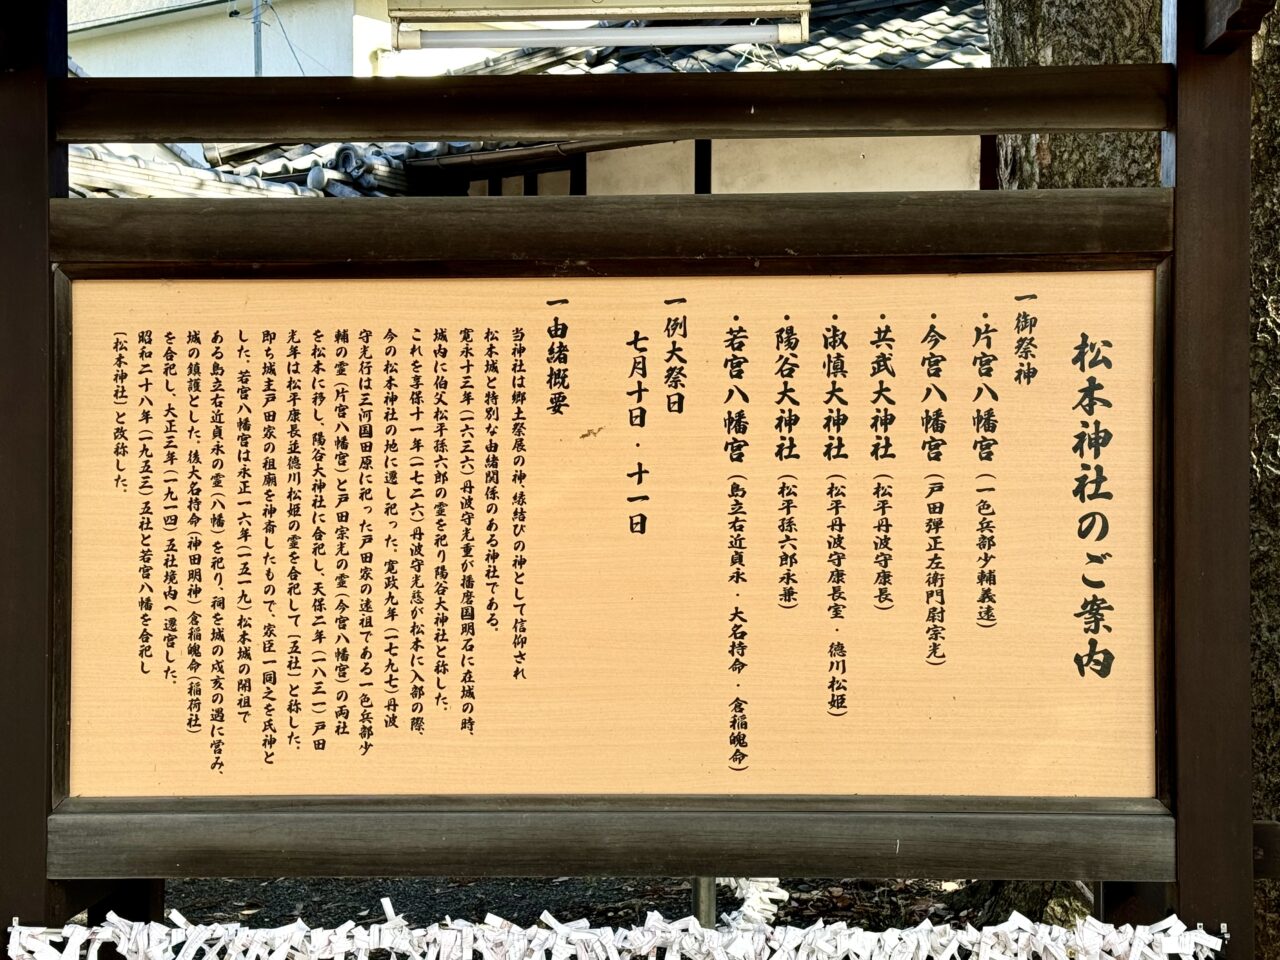 松本神社のご案内
一 御祭神
・片宮八幡宮（一色兵部少輔義遠）
・今宮八幡宮（戸田弾正左衛門尉宗光）
・共武大神社（松平丹波守康長）
・淑慎大神社（松平丹波守康長室・徳川松姫）
・陽谷大神社（松平孫六郎永兼）
・若宮八幡宮（島立右近貞永・大名持命・倉稲魄命）
一 例大祭日
七月十日・十一日
一 由緒概要
当神社は郷土発展の神、縁結びの神として信仰され
松本城と特別な由緒関係のある神社である。
寛永十三年（一六三六）丹波守光重が播磨国明石に在城の時、
城内に伯父松平孫六郎の霊を祀り陽谷大神社と称した。
これを享保十一年（一七二六）丹波守光慈が松本に入部の際、
今の松本神社の地に遷し祀った。寛政九年（一七九七）丹波
守光行は三河国田原に祀った戸田家の遠祖である一色兵部少
輔の霊（片宮八幡宮）と戸田宗光の霊（今宮八幡宮）の両社
を松本に移し、陽谷大神社に合祀し、天保二年（一八三一）戸田
光年は松平康長並徳川松姫の霊を合祀して（五社）と称した、
即ち城主戸田家の祖廟を神斎したもので、家臣一同之を氏神と
した。若宮八幡宮は永正一六年（一五一九）松本城の開祖で
ある島立右近貞永の霊（八幡）を祀り、祠を城の戍亥の遇に営み、
城の鎮護とした。後大名持命（神田明神）倉稲魄命（稲荷社）
を合祀し、大正三年（一九一四）五社境内へ遷宮した。
昭和二十八年（一九五三）五社と若宮八幡を合祀し
（松本神社）と改称した。